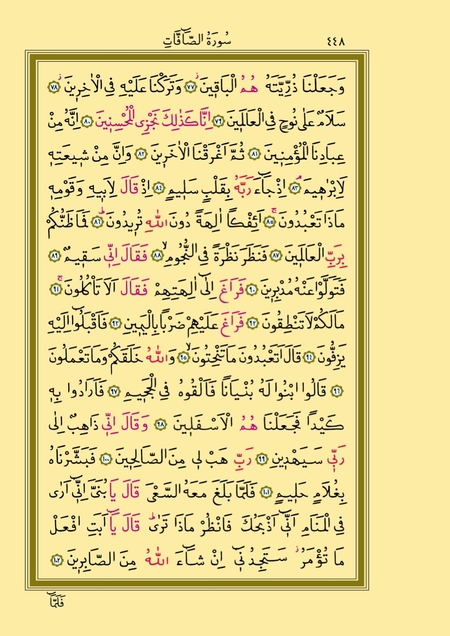 ٤٤٨ سُورَةُ الصَّٓافَّاتِ
وَجَعَلْنَا ذُرِّيَّتَهُ هُمُ الْبَاقٖينَ ﴿٧٧﴾ وَتَرَكْنَا عَلَيْهِ فِي الْاٰخِرٖينَ ﴿٧٨﴾
سَلَامٌ عَلٰى نُوحٍ فِي الْعَالَمٖينَ ﴿٧٩﴾ اِنَّا كَذٰلِكَ نَجْزِي الْمُحْسِنٖينَ ﴿٨٠﴾ اِنَّهُ مِنْ
عِبَادِنَا الْمُؤْمِنٖينَ ﴿٨١﴾ ثُمَّ اَغْرَقْنَا الْاٰخَرٖينَ ﴿٨٢﴾ وَاِنَّ مِنْ شٖيعَتِهٖ
لَاِبْرٰهٖيمَ ﴿٨٣﴾ اِذْ جَٓاءَ رَبَّهُ بِقَلْبٍ سَلٖيمٍ ﴿٨٤﴾ اِذْ قَالَ لِاَبٖيهِ وَقَوْمِهٖ
مَاذَا تَعْبُدُونَ ﴿٨٥﴾ اَئِفْكًا اٰلِهَةً دُونَ اللّٰهِ تُرٖيدُونَ ﴿٨٦﴾ فَمَا ظَنُّكُمْ
بِرَبِّ الْعَالَمٖينَ ﴿٨٧﴾ فَنَظَرَ نَظْرَةً فِي النُّجُومِ ﴿٨٨﴾ فَقَالَ اِنّٖي سَقٖيمٌ ﴿٨٩﴾
فَتَوَلَّوْا عَنْهُ مُدْبِرٖينَ ﴿٩٠﴾ فَرَاغَ اِلٰٓى اٰلِهَتِهِمْ فَقَالَ اَلَا تَأْكُلُونَ ﴿٩١﴾
مَا لَكُمْ لَا تَنْطِقُونَ ﴿٩٢﴾ فَرَاغَ عَلَيْهِمْ ضَرْبًا بِالْيَمٖينِ ﴿٩٣﴾ فَاَقْبَلُٓوا اِلَيْهِ
يَزِفُّونَ ﴿٩٤﴾ قَالَ اَتَعْبُدُونَ مَا تَنْحِتُونَ ﴿٩٥﴾ وَاللّٰهُ خَلَقَكُمْ وَمَا تَعْمَلُونَ
﴿٩٦﴾ قَالُوا ابْنُوا لَهُ بُنْيَانًا فَاَلْقُوهُ فِي الْجَحٖيمِ ﴿٩٧﴾ فَاَرَادُوا بِهٖ
كَيْدًا فَجَعَلْنَا هُمُ الْاَسْفَلٖينَ ﴿٩٨﴾ وَقَالَ اِنّٖي ذَاهِبٌ اِلٰى
رَبّٖي سَيَهْدٖينِ ﴿٩٩﴾ رَبِّ هَبْ لٖي مِنَ الصَّالِحٖينَ ﴿١٠٠﴾ فَبَشَّرْنَاهُ
بِغُلَامٍ حَلٖيمٍ ﴿١٠١﴾ فَلَمَّا بَلَغَ مَعَهُ السَّعْيَ قَالَ يَا بُنَيَّ اِنّٖٓي اَرٰى
فِي الْمَنَامِ اَنّٖٓي اَذْبَحُكَ فَانْظُرْ مَاذَا تَرٰى قَالَ يَٓا اَبَتِ افْعَلْ
مَا تُؤْمَرُ سَتَجِدُنٖٓي اِنْ شَٓاءَ اللّٰهُ مِنَ الصَّابِرٖينَ ﴿١٠٢﴾
فَلَمَّٓا